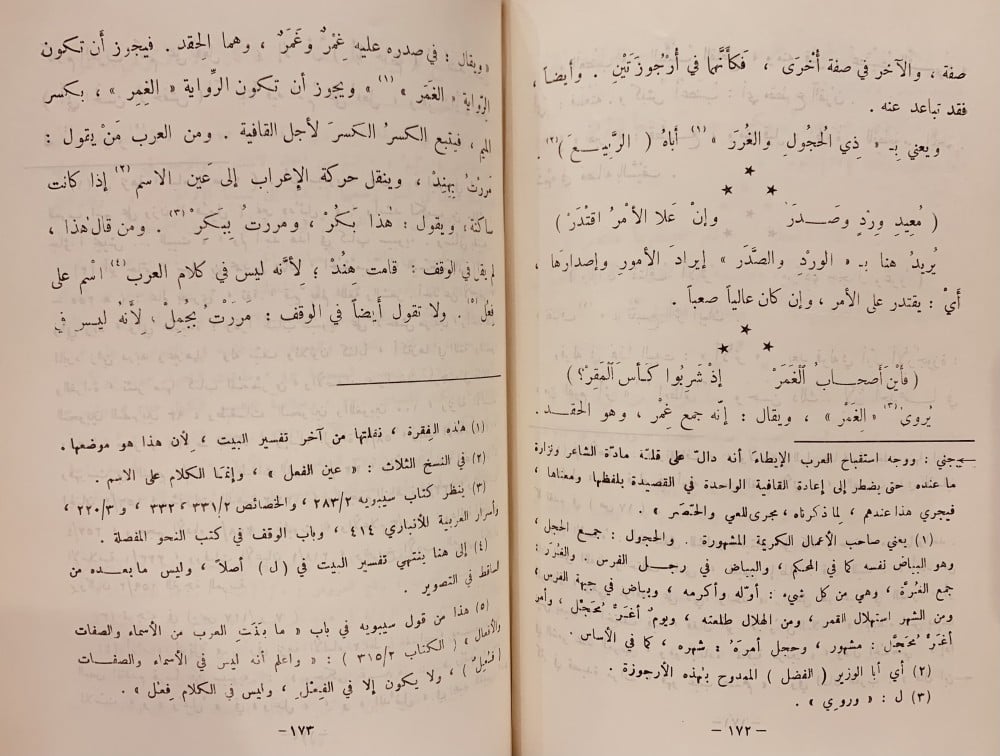 صفة ، والآخر في صفة أُخْرَى ، فَكأَنَّهما في أُرْجوزَتَيْنِ . وأيضاً ،
فقد تباعد عنه .
ويعني بِـ « ذِي الحُجُولِ والغُرَرَ » (١) أباهُ ( الرَّبِيـعَ ) (٢) .
( مُعِيدِ وِرْدٍ وصَـدَرْ وإنْ عَلا الأمْرُ اقْتَدَرْ )
يُريدُ هنا بـ « الوِرْدِ والصَّدَر » إيرادَ الأمورِ وإصدارَها ،
أيْ : يقتدر على الأمر ، وإن كان عالياً صعباً .
( فأَيْنَ أصحـابُ الْغَمَرْ إذْ شَرِبُوا كَـأسَ الْمَقِرْ ؟ )
يُروىٰ (٣) « الغِمَرْ » ، ويقال : إنّه جمع غِمْر ، وهو الحقد .
جني : ووجه استقباح العرب الإيطاءَ أنه دالّ على قلـّة مادّة الشاعر ونزارة
ما عنده حتى يضطر إلى إعادة القافية الواحدة في القصيدة بلفظها ومعناها
فيجري هذا عندهم ، لِما ذكرناه ، مجرى للعي والحَصَر » .
(١) يعني صاحب الأعمال الكريمة المشهورة . والحجول : جمـع الحجل ،
وهو البياض نفسه كما في المحكم ، والبياض في رجـل الفرس . والغُرَر :
جمع الغُرَّة ، وهي من كل شيء : أوّله وأكرمه ، وبياض في جبهة الفرس ،
ومن الشهر استهلال القمر ، ومن الهلال طلعته . ويومٌ أغَرّ مُحَجّل ، وأمر
أغَرّ مُحَجّل : مشهور ، وحجل أمرهُ : شهره ، كما في الأساس .
(٢) أي أبا الوزير ( الفضل ) الممدوح بهذه الأرجوزة .
(٣) ل : « وروي » .
– ١٧٢ –
« ويقال : في صدره عليه غِمْرٌ وغَمَرٌ ، وهما الحِقد . فيجوز أن تكون
الرّواية « الغَمَر » (١) ويجوز أن تكون الرِّواية « الغِمِر » ، بكسر
الميم ، فيتبع الكسرُ الكسرَ لأجل القافية . ومن العرب مَنْ يقول :
مَررتُ بِهِنِدْ ، وينقل حركة الإعراب إلى عَين الاسم (٢) إذا كانت
ساكنة ، ويقول : هٰذا بَكُرْ ، ومررتُ بِبَكِرْ (٣) . ومن قال هٰذا ،
لم يقل في الوقف : قامت هِنُدْ ، لأنَّه ليس في كلام العرب (٤) اسْم على
فِعُلْ (٥) . ولا تقول أيضاً في الوقف : مررتُ بجُمِلْ ، لِأنَّهُ ليس في
(١) هٰذه الفِقرة ، نقلتها من آخر تفسير البيت ، لأن هذا هو موضعها .
(٢) في النسخ الثلاث : « عين الفعل » ، وإنمـّا الكلام على الاسم .
(٣) ينظر كتاب سيبويه ٢٨٣/٢ ، والخصائص ٣٣١/٢ ، ٣٣٢ ، و ٢٢٠/٣ ،
وأسرار العربية للأنباري ٤١٤ ، وباب الوقف في كتب النحو المفصلة .
(٤) إلى هنا ينتهي تفسير البيت في ( ل ) أصلاً ، وليس ما بعـده من
الساقط في التصوير .
(٥) هذا من قول سيبويه في باب « ما بَنَتِ العرب من الأسماء والصفات
والأفعال » ( الكتاب ٣١٥/٢ ) : « واعلم أنه ليس في الأسماء والصفـات
( فُعِلٌ ) ، ولا يكون إلا في الفِعْل ، وليس في الكلام فِعُل » .
– ١٧٣ –